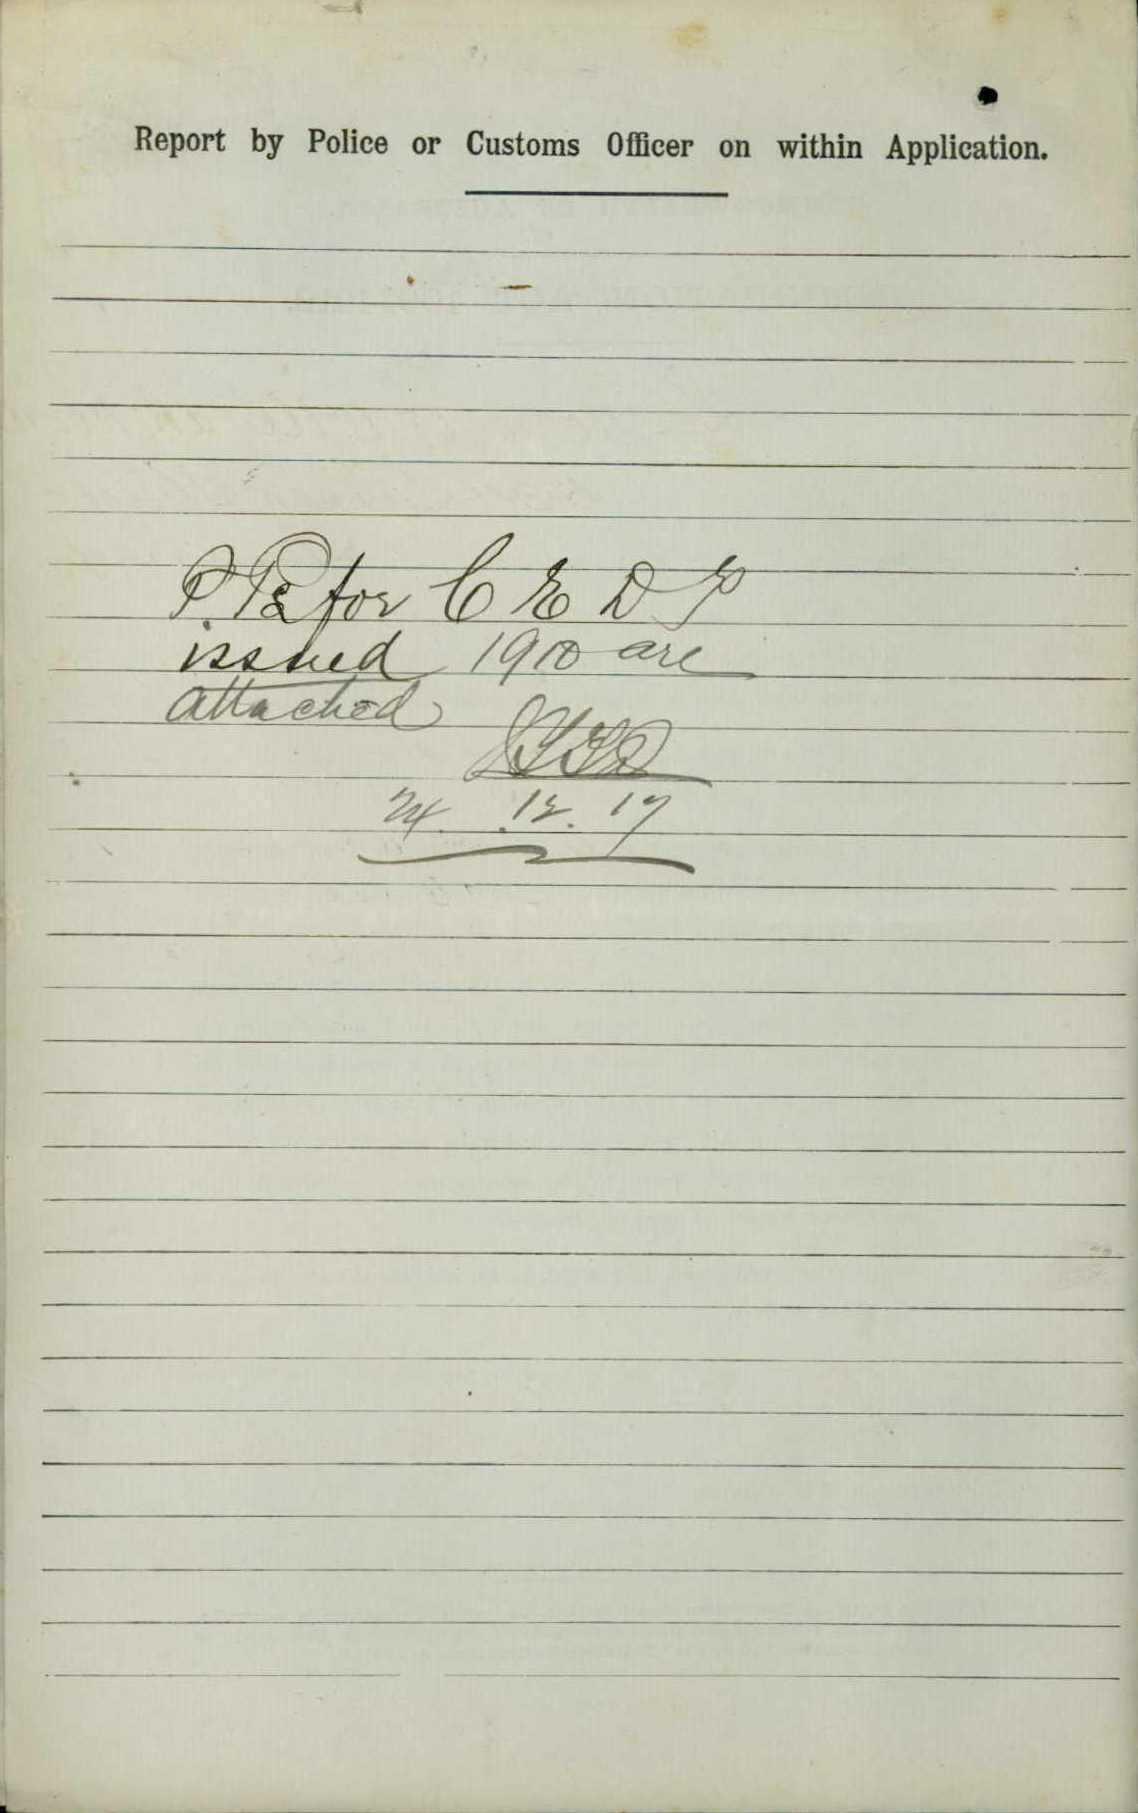 Report by Police or Customs Officer on within Application.
for C E D P
issued 1910 are
attached
24. 12. 17